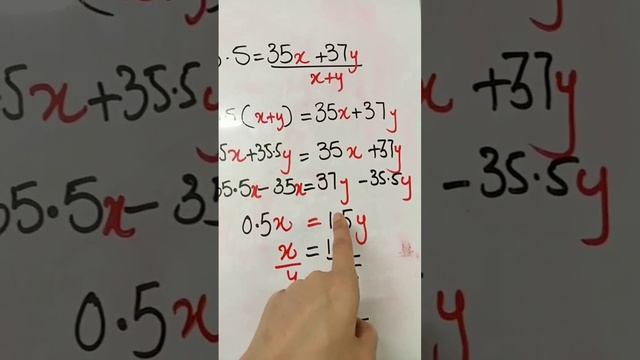 5·5=35x+37y
x+y
·5(x+y)=35x+37y
5x+35·5y=35x+37y
35·5x-35x=37y-35·5y
0.5x=1.5y
x
y
=